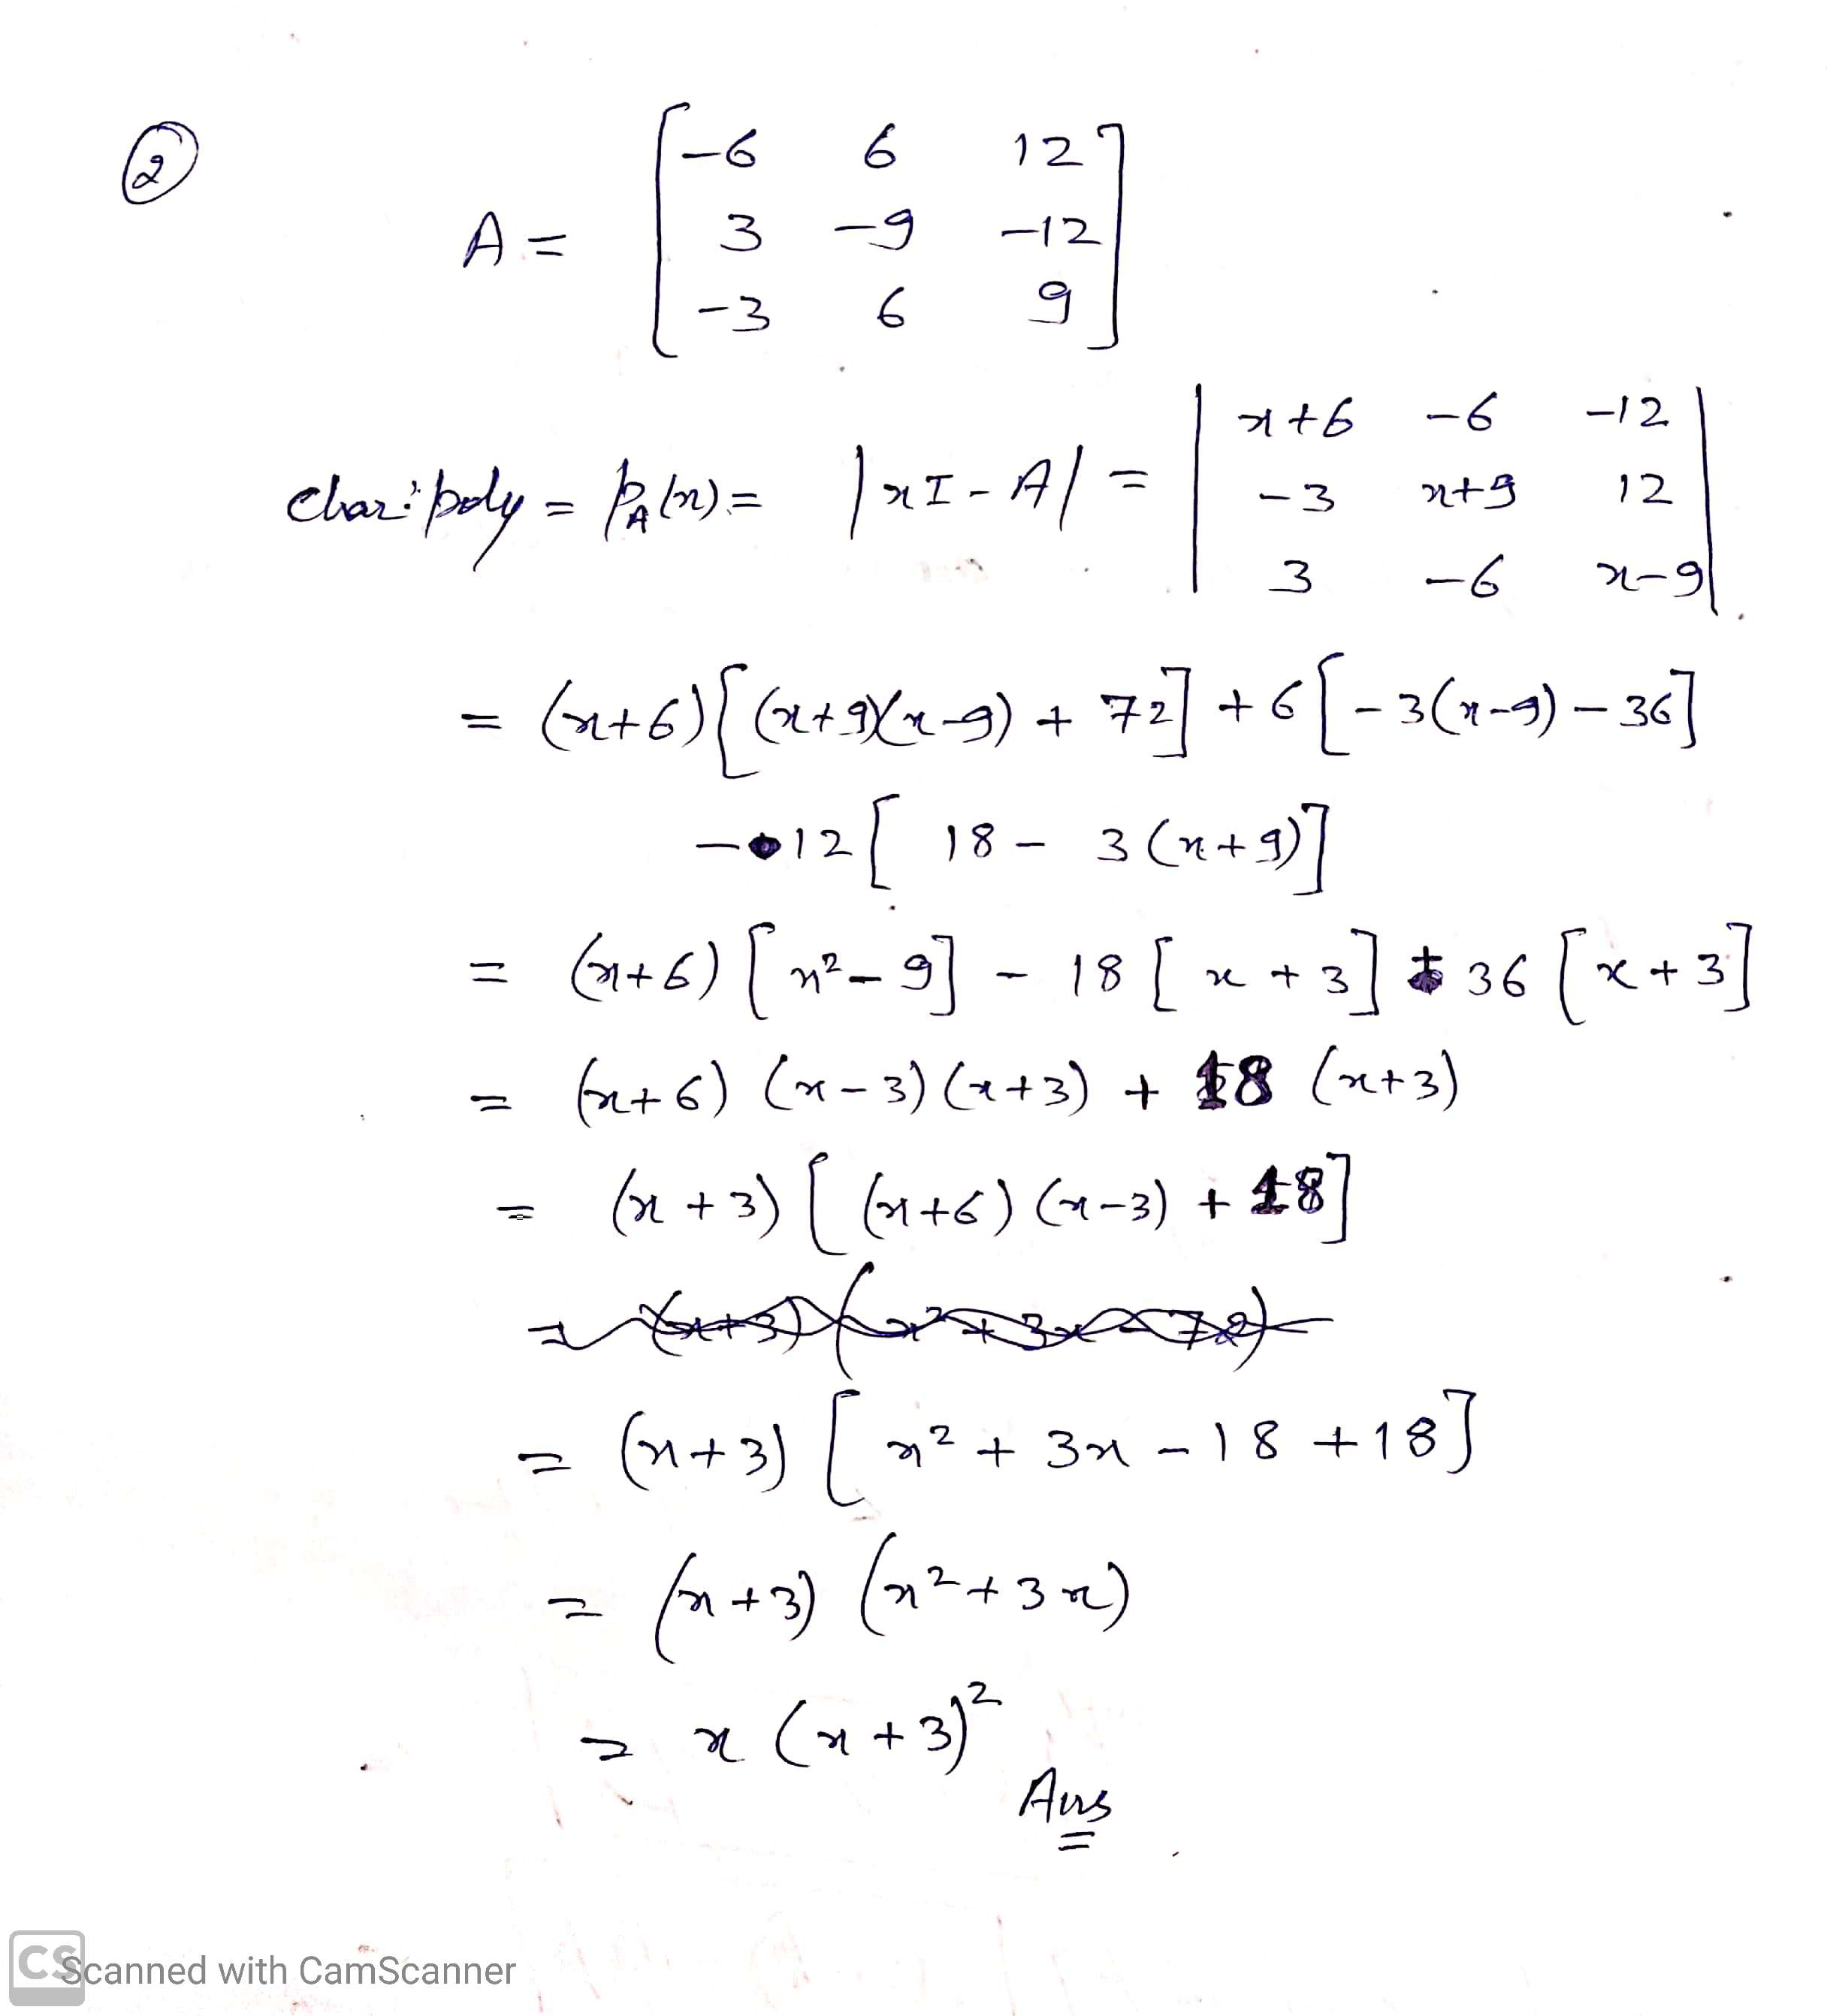 ②
A = [ -6 6 12
3 -9 -12
-3 6 9 ]
char: poly = P_A(x) = |xI - A| = | x+6 -6 -12
-3 x+9 12
3 -6 x-9 |
= (x+6)[(x+9)(x-9) + 72] + 6[-3(x-9) - 36]
- 12[ 18 - 3(x+9)]
= (x+6)[x² - 9] - 18[x + 3] + 36[x + 3]
= (x+6)(x-3)(x+3) + 18(x+3)
= (x+3)[(x+6)(x-3) + 18]
= (x+3)[x² + 3x - 18 + 18]
= (x+3)(x² + 3x)
= x(x+3)²
Ans
CS Scanned with CamScanner